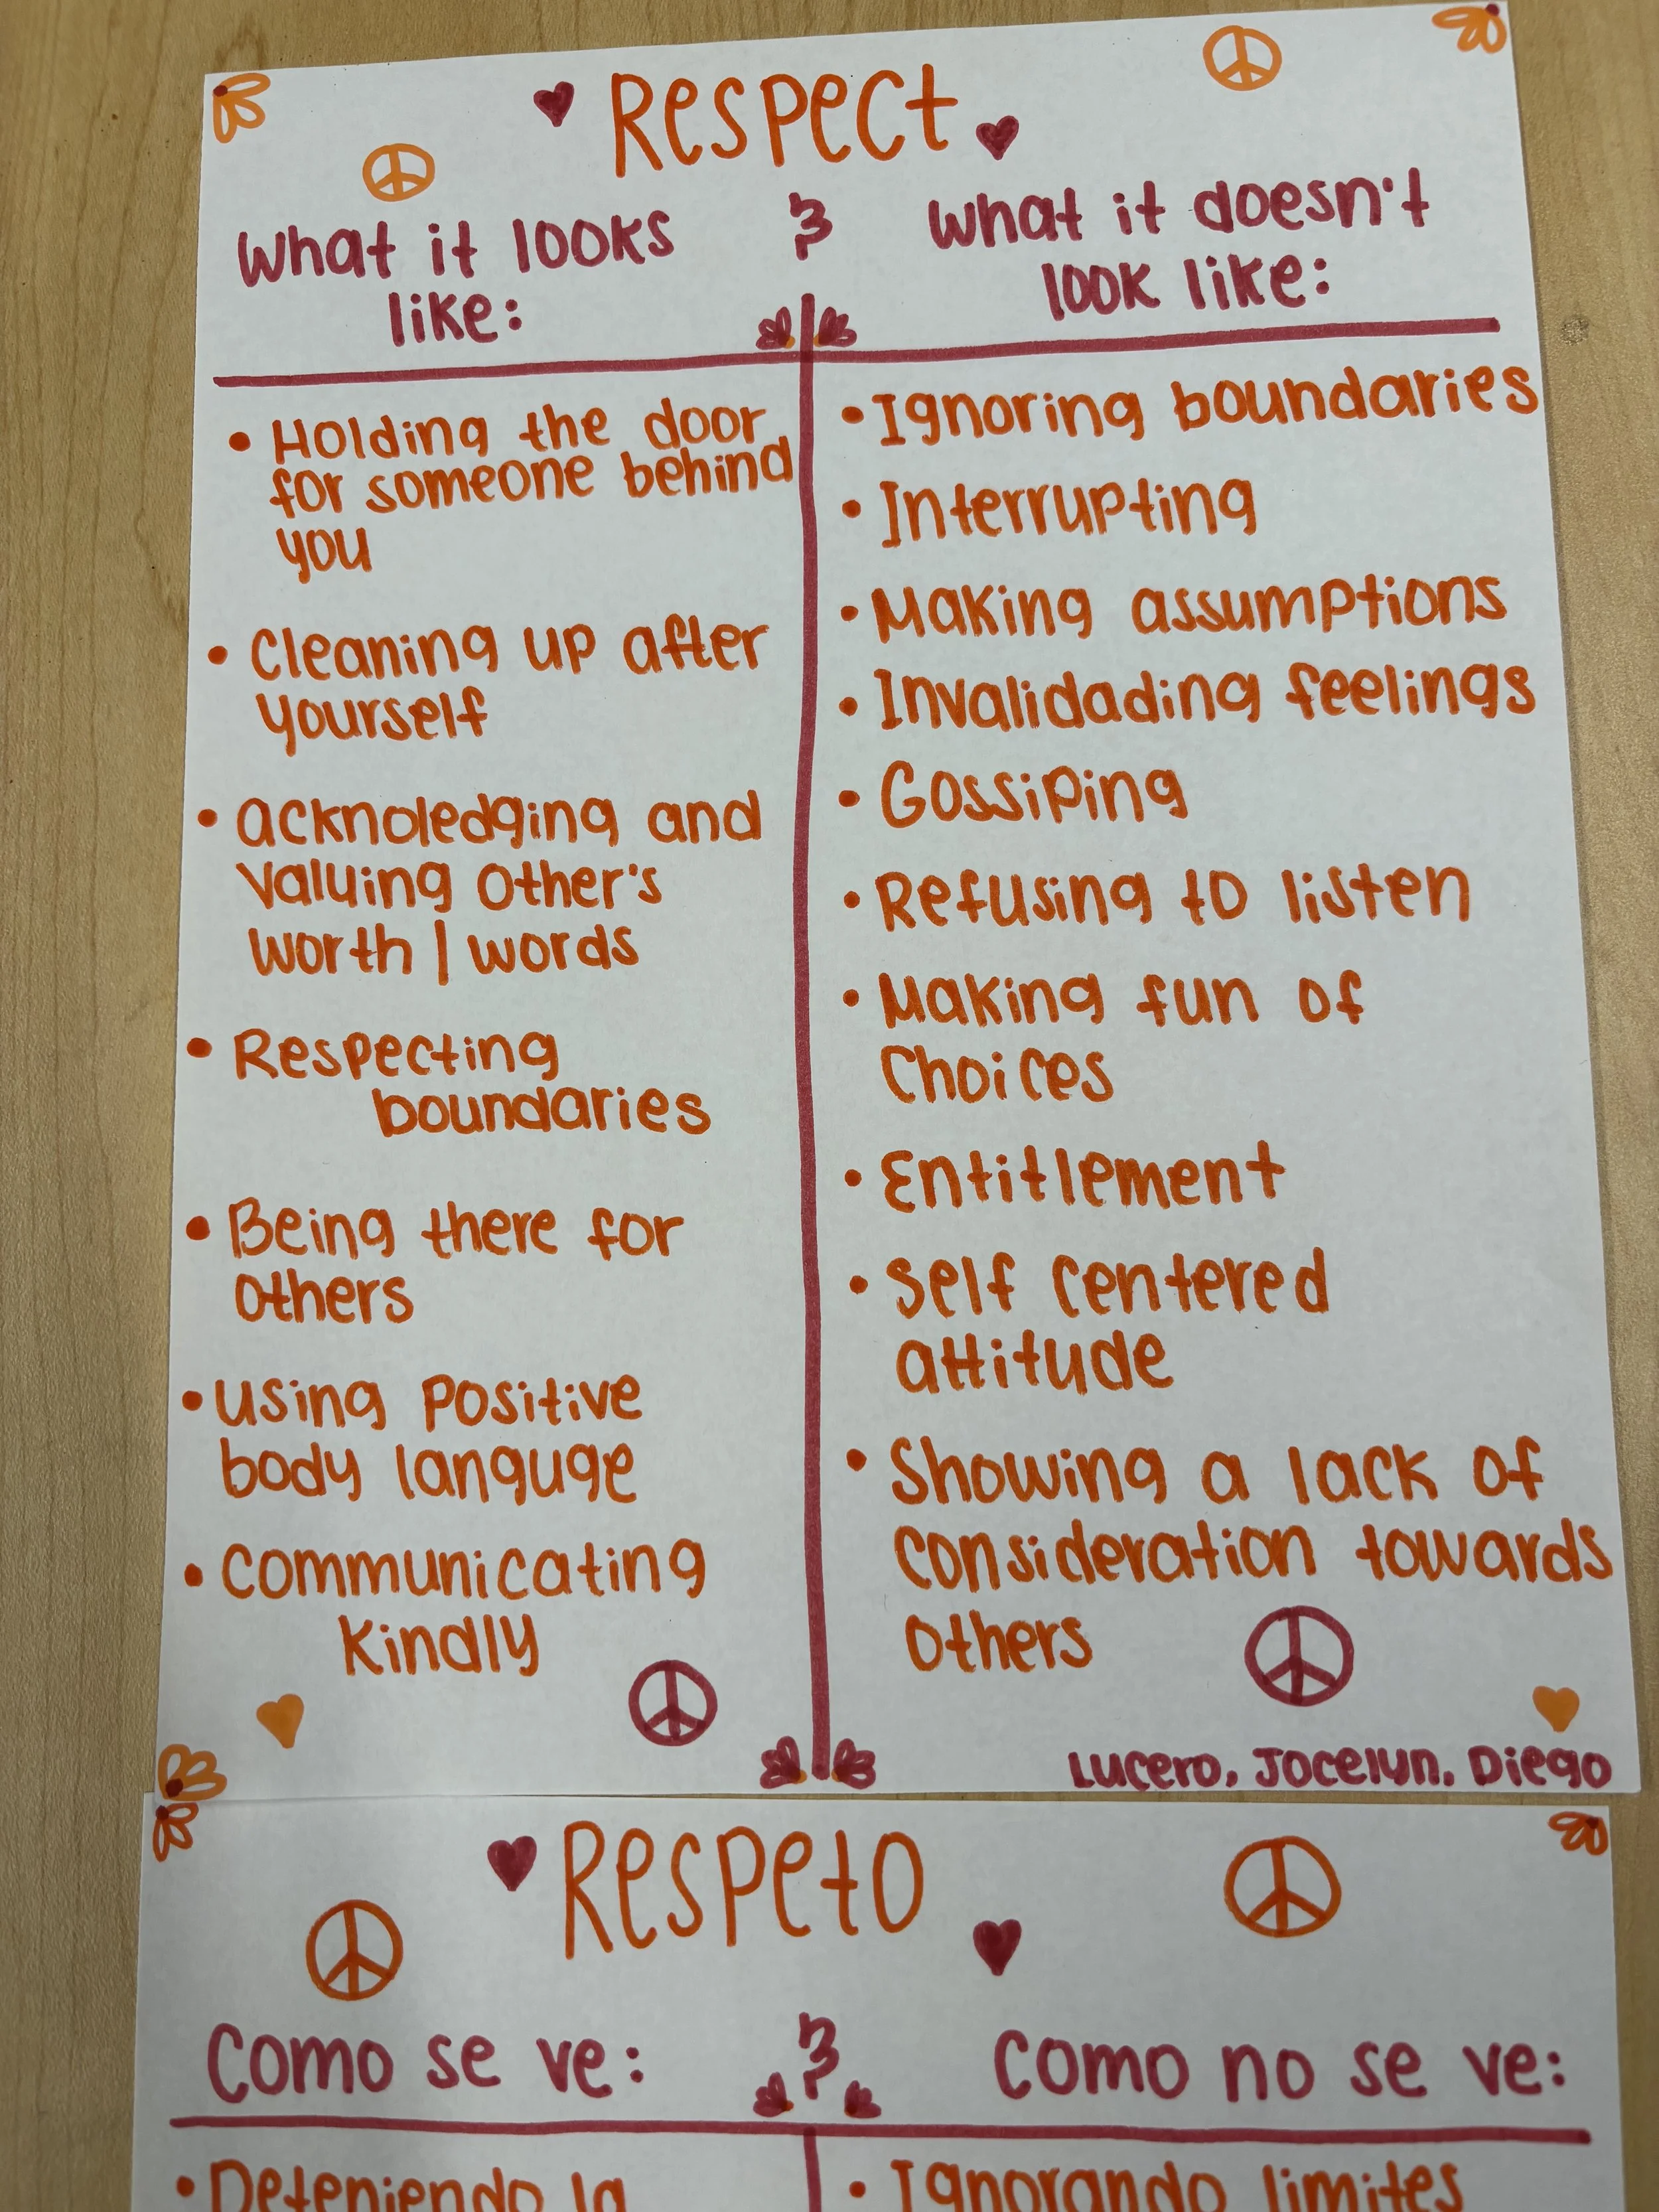 Respect
What it looks like:
&
What it doesn't look like:
• Holding the door
for someone behind
you
• Cleaning up after
yourself
• acknoledging and
valuing other's
worth | words
• Respecting
boundaries
• Being there for
others
• using positive
body languge
• communicating
kindly
• Ignoring boundaries
• Interrupting
• Making assumptions
• Invalidading feelings
• Gossiping
• Refusing to listen
• Making fun of
choices
• Entitlement
• Self centered
attitude
• Showing a lack of
consideration towards
others
Lucero, Jocelyn, Diego
Respeto
Como se ve:
&
Como no se ve:
• Deteniendo la
• Ignorando limites